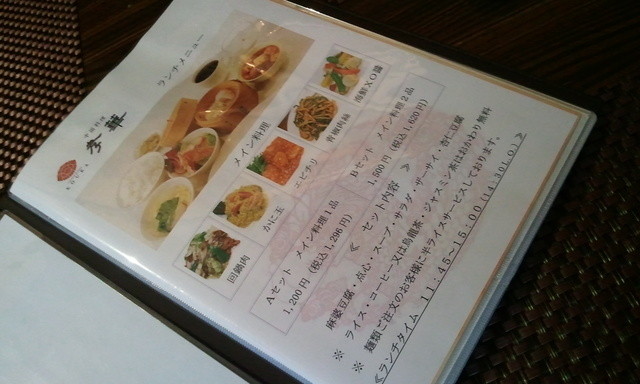 ランチメニュー
中国料理
メイン料理
海鮮XO醤
青椒肉絲
エビチリ
かに玉
回鍋肉
Aセット メイン料理1品
1,200円(税込1,296円)
Bセット メイン料理2品
1,500円(税込1,620円)
≪ セット内容 ≫
麻婆豆腐・点心・スープ・サラダ・ザーサイ・杏仁豆腐
※ ライス・コーヒー又は烏龍茶・ジャスミン茶はおかわり無料
※ 麺類ご注文のお客様に半ライスサービスしております。
≪ランチタイム 11:45~15:00(14:30L.O)≫